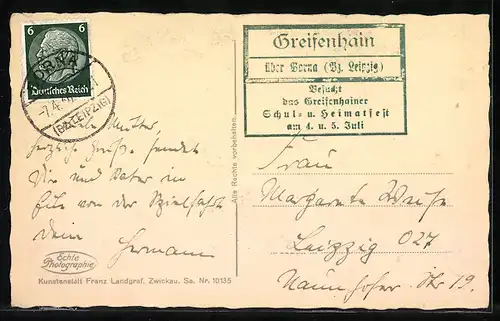 6 6
Deutsches Reich
BORNA
(BZ. LEIPZIG)
Greifenhain
über Borna (Bz. Leipzig)
Besucht
das Greifenhainer
Schul- u. Heimatfest
am 4. u. 5. Juli
Mutter,
herzliche Grüße sendet
Dir und Vater in
Eile von der
Dein Hermann
Alle Rechte vorbehalten.
Frau
Margarete
Leipzig O27
Naunhofer Str 19.
Echte
Photographie
Kunstanstalt Franz Landgraf, Zwickau, Sa. Nr. 10135